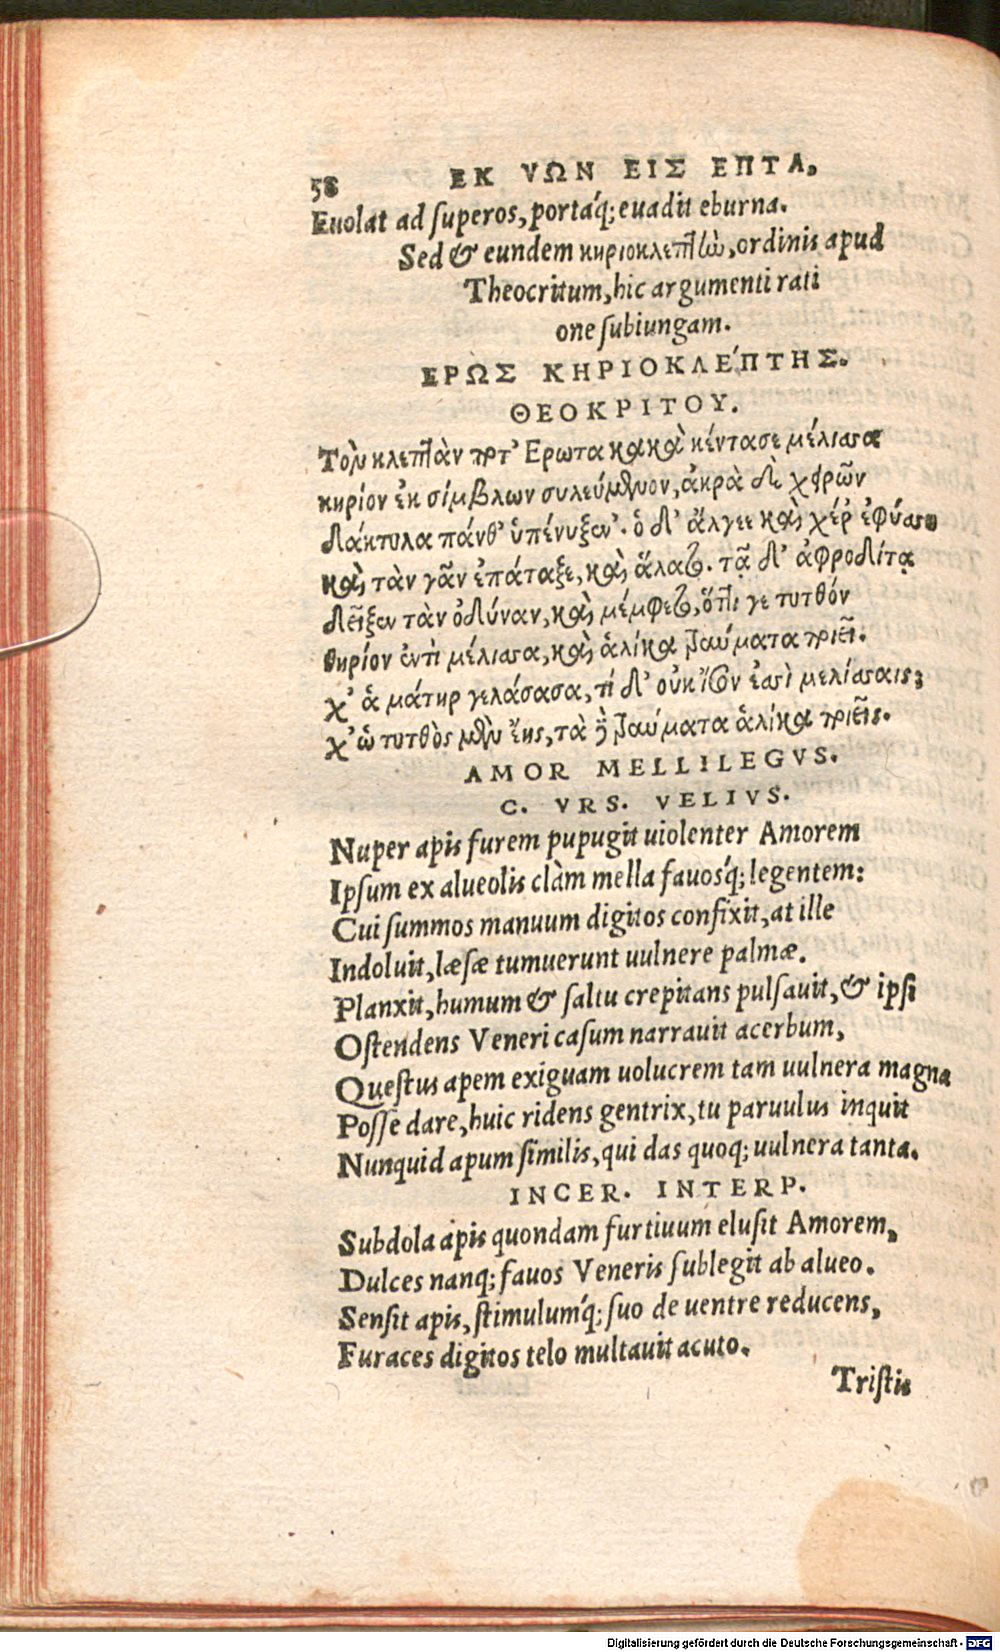 58 ΕΚ ΥΩΝ ΕΙΣ ΕΠΤΑ.
Euolat ad superos, portáq; euadit eburna.
Sed & eundem κηριοκλεπτίω, ordinis apud
Theocritum, hic argumenti rati
one subiungam.
ΕΡΩΣ ΚΗΡΙΟΚΛΕΠΤΗΣ.
ΘΕΟΚΡΙΤΟΥ.
Τὸν κλεπτὰν ποτ' Ερωτα κακὰ κέντασε μέλισσα
κηρίον ἐκ σίμβλων συλεύμενον, ἀκρὰ δὲ χειρῶν
δάκτυλα πάνθ' ὑπένυξεν. ὁ δ' ἄλγεε καὶ χέρ' ἐφύσσῃ
καὶ τὰν γᾶν ἐπάταξε, καὶ ἅλατο. τᾷ δ' ἀφροδίτᾳ
δεῖξεν τὰν ὀδύναν, καὶ μέμφετο, ὅττι γε τυτθόν
θηρίον ἐντὶ μέλισσα, καὶ ἁλίκα τραύματα τριεῖ.
χ' ἁ μάτηρ γελάσασα, τί δ' οὐκ ἴσον ἐσσὶ μελίσσαις;
χ' ὡ τυτθὸς μὲν ἔῃς, τὰ δὲ τραύματα ἁλίκα τριεῖς.
AMOR MELLILEGVS.
C. VRS. VELIVS.
Nuper apis furem pupugit uiolenter Amorem
Ipsum ex alueolis clàm mella fauosq́; legentem:
Cui summos manuum digitos confixit, at ille
Indoluit, læsæ tumuerunt uulnere palmæ.
Planxit, humum & saltu crepitans pulsauit, & ipsi
Ostendens Veneri casum narrauit acerbum,
Questus apem exiguam uolucrem tam uulnera magna
Posse dare, huic ridens gentrix, tu paruulus inquit
Nunquid apum similis, qui das quoq; uulnera tanta.
INCER. INTERP.
Subdola apis quondam furtiuum elusit Amorem,
Dulces nanq; fauos Veneris sublegit ab alueo.
Sensit apis, stimulumq́; suo de uentre reducens,
Furaces digitos telo multauit acuto.
Tristis
Digitalisierung gefördert durch die Deutsche Forschungsgemeinschaft - DFG